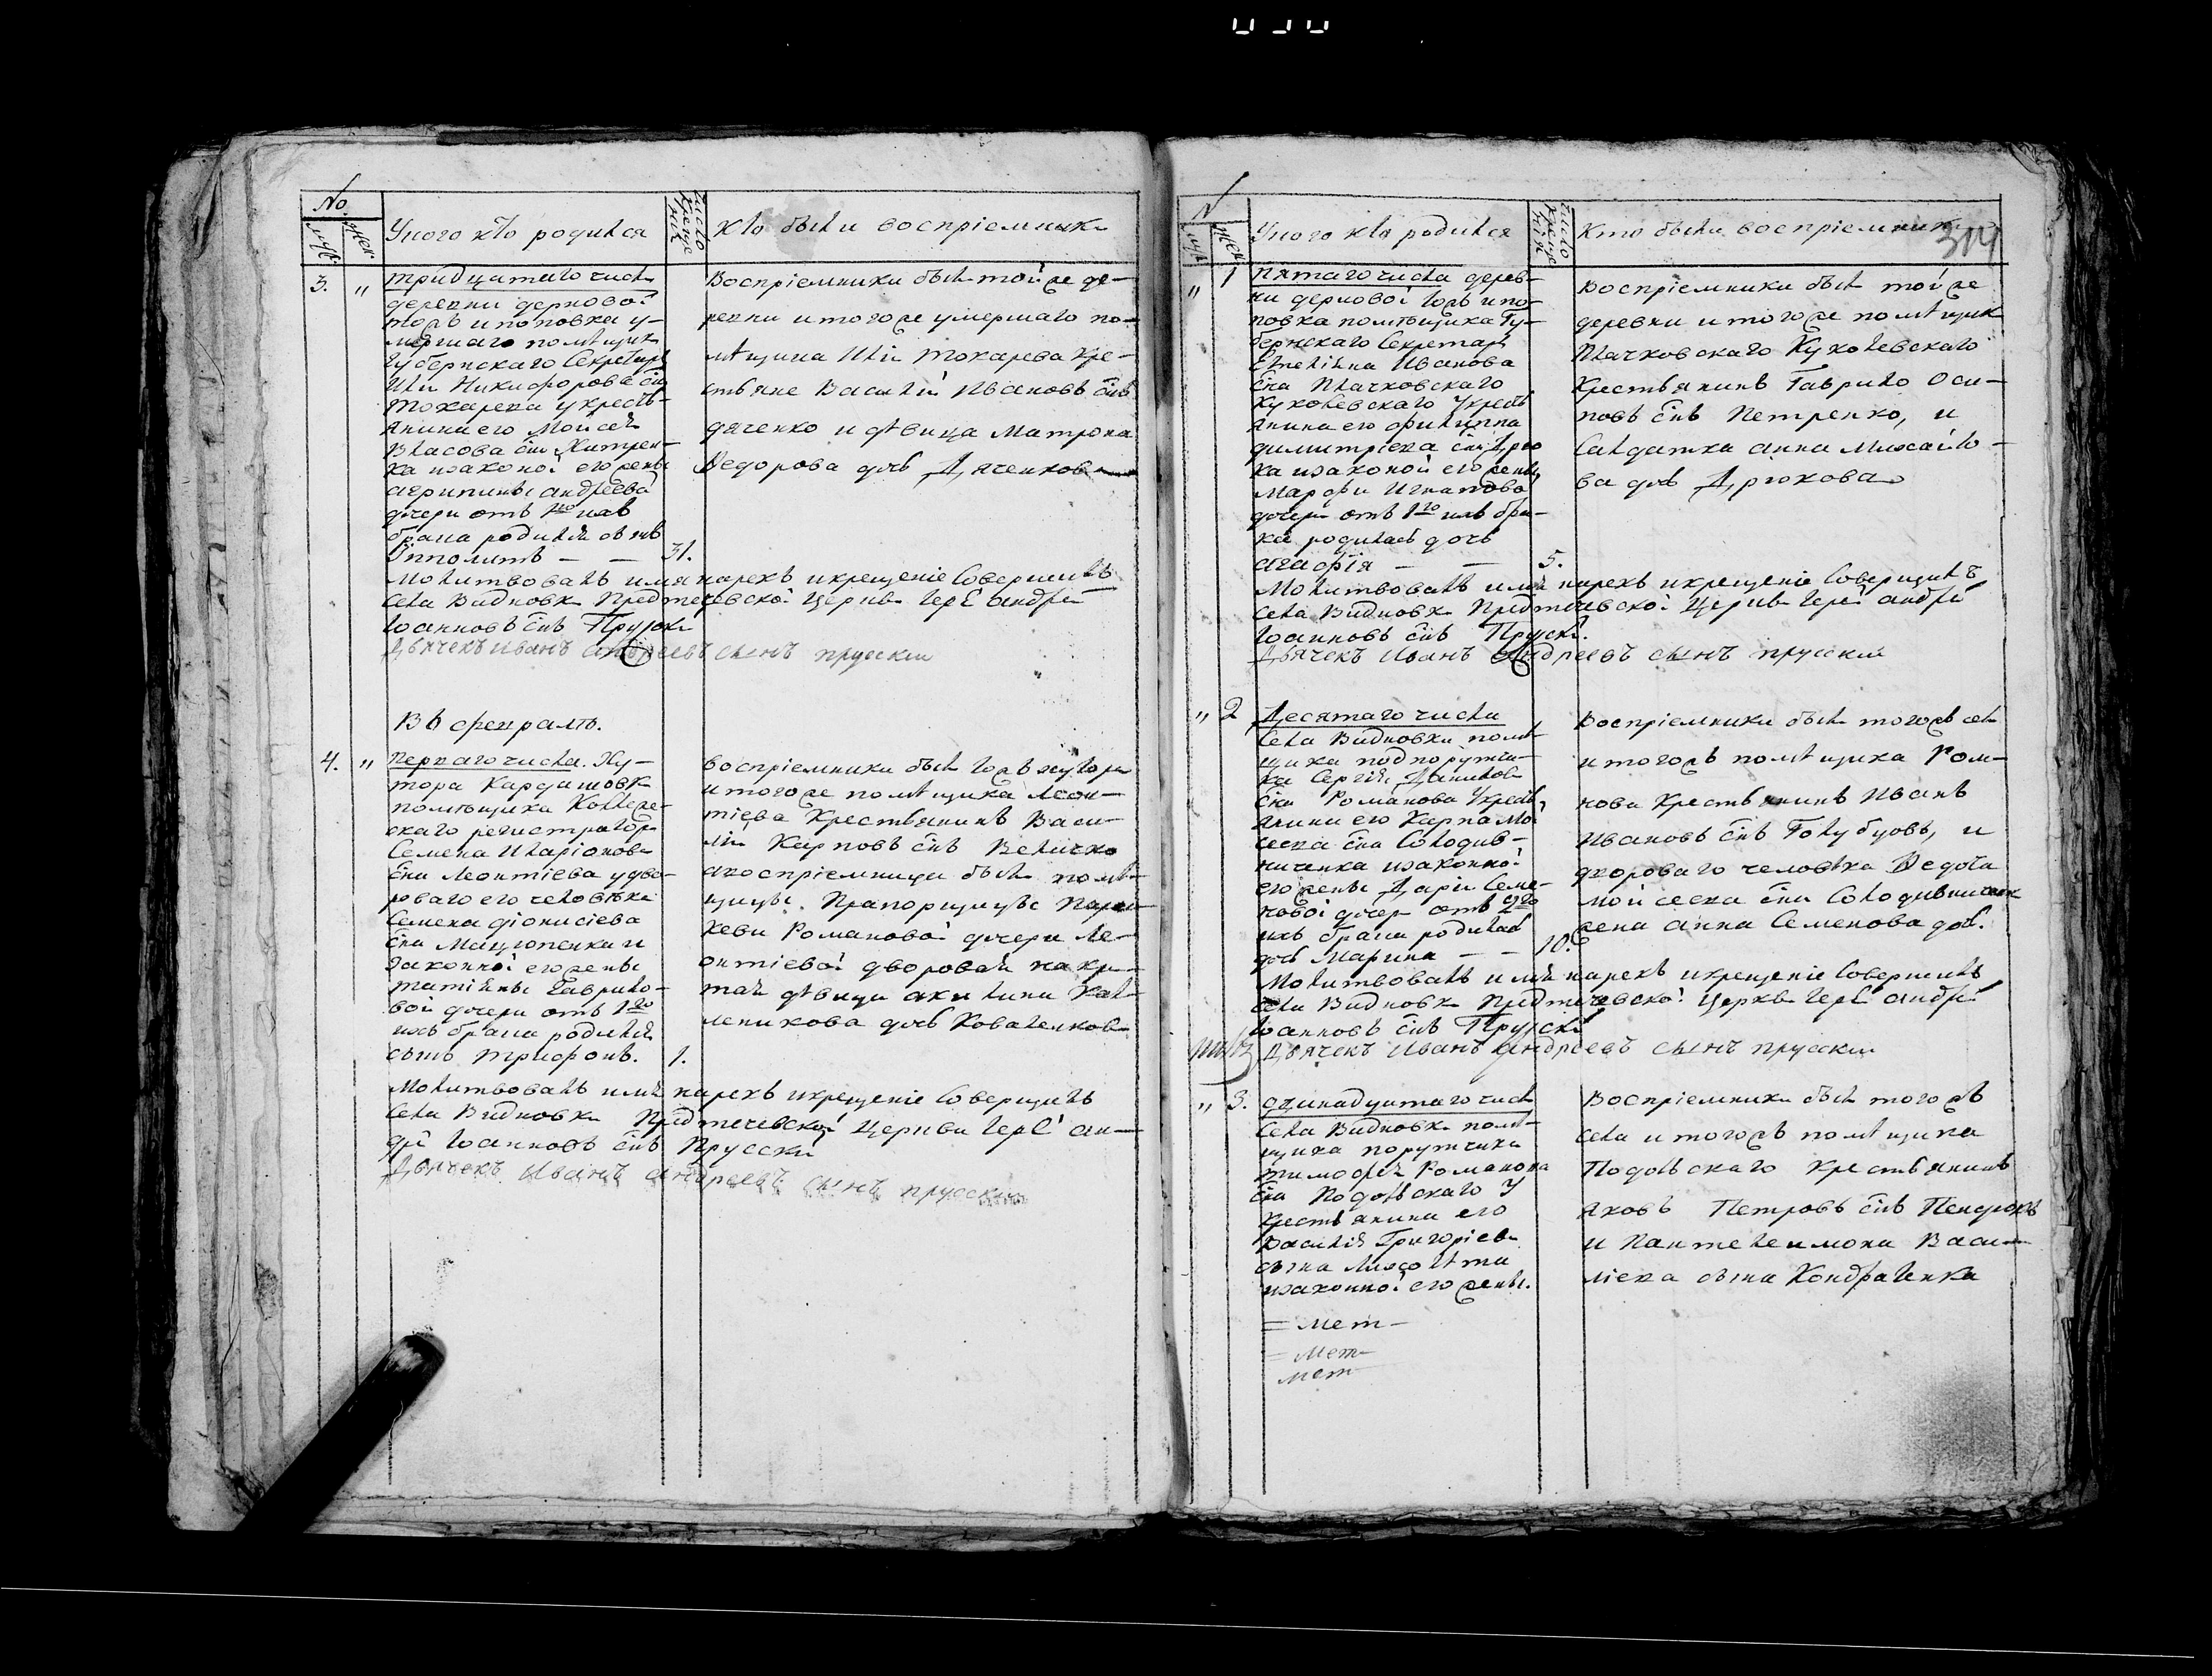 No.
муж.
жен.
У кого кто родился
число крещенія
кто были воспріемники
3. „
тридцатаго числа
деревни дерновой
тожъ и поповка у-
мершаго помѣщика
губернскаго Секретаря
Иліи Никифорова сна
токарева у кресть-
янина его Моисея
Власова сна Хитрен-
ка изаконой его жены
агрипины андреевой
дочери отъ 1го ихъ
брака родился сынъ
Іпполитъ — — 31.
Воспріемники были тойже де-
ревни и тогоже умершаго по-
мѣщика Иліи токарева кре-
стьяне Василій Ивановъ снъ
дяченко и дѣвица Матрона
Ѳедорова дочь Дяченкова
Молитвовалъ имя нарекъ икрещеніе Совершилъ
села Видновки Предтечевской Церкви Іерей андрей
Іоанновъ снъ Прускій
Дьячекъ Иванъ андреевъ сынъ прусскии
Въ февралѣ.
4. „
Перваго числа. Ху-
тора Кардашовки
помѣщика Коллеже-
скаго регистратора
Семена Иларіонова
сна Леонтіева удво-
роваго его человѣка
Семена діонисіева
сна Мацюпенка и
законной его жены
татіяны Гаврило-
вой дочери отъ 1го
ихъ брака родился
сынъ трифонъ. 1.
воспріемники были тогожъ хутора
и тогоже помѣщика Леон-
тіева Крестьянинъ Васи-
лій Карповъ снъ Величко
авоспріемницы были помѣ-
щицы. Прапорщицы Парас-
кеви Романовой дочери Ле-
онтіевой дворовая накри-
тая дѣвица акилина Кал-
леникова дочь Коваленкова
Молитвовалъ имя нарекъ икрещеніе Совершилъ
села Видновки Предтечевской Церкви Іерей ан-
дрей Іоанновъ снъ Прусскій
Дьячекъ Иванъ андреевъ сынъ прусскии
N
муж
жен
У кого кто родился
число крещенія
Кто были воспріемники
314
„ 1
Пятаго числа дерев-
ни дерновой тожъ и по-
повка помѣщика Гу-
бернскаго Секретаря
Емеліяна Иванова
сна Плачковскаго
Куколевскаго Укресть
янина его филиппа
димитріева сна Дрю
ка изаконой его жены
Марфи Игнатовой
дочери отъ 1го ихъ бра-
ка родилась дочь
агафія — — 5.
Воспріемники были тойже
деревни и тогоже помѣщика
Плачковскаго Куколевскаго
Крестьянинъ Гаврило Оси-
повъ снъ Петренко, и
Салдатка анна Михайло-
ва дочь Дрюкова
Молитвовалъ имя нарекъ икрещеніе Совершилъ
села Видновки Предтечевской Церкви Іерей андрей
Іоанновъ снъ Прускій.
Дьячекъ Иванъ Андреевъ сынъ прусскии
„ 2
Десятаго числа
села Видновки помѣ-
щика подпорутчи-
ка Сергія Данилова
сна Романова Укресть
янина его Карпа Мо
исеева сна Солодив-
ниченка изаконной
его жены Даріи Семе-
новой дочери отъ 2го
ихъ брака родилась
дочь Марина — — 10.
Воспріемники были тогожъ села
и тогожъ помѣщика Рома-
нова Крестьянинъ Иванъ
Ивановъ снъ Голубцовъ, и
двороваго человѣка Ѳедота
Мойсеева сна Солодивниченка
жена анна Семенова дочь.
Молитвовалъ имя нарекъ икрещеніе Совершилъ
села Видновки Предтечевской Церкви Іерей андрей
Іоанновъ снъ Прускій
Дьячекъ Иванъ Андреевъ сынъ прусскии
„ 3.
одинадцатаго числа
села Видновки помѣ-
щика порутчика
тимофея Романова
сна Подольскаго У
крестьянина его
Василія Григоріева
сына
изаконной его жены.
Воспріемники были тогожъ
села и тогожъ помѣщика
Подольскаго крестьянинъ
яковъ Петровъ снъ
и Пантелеимона Васи-
ліева сына Кондратенка
= мет —
— мет —
мет